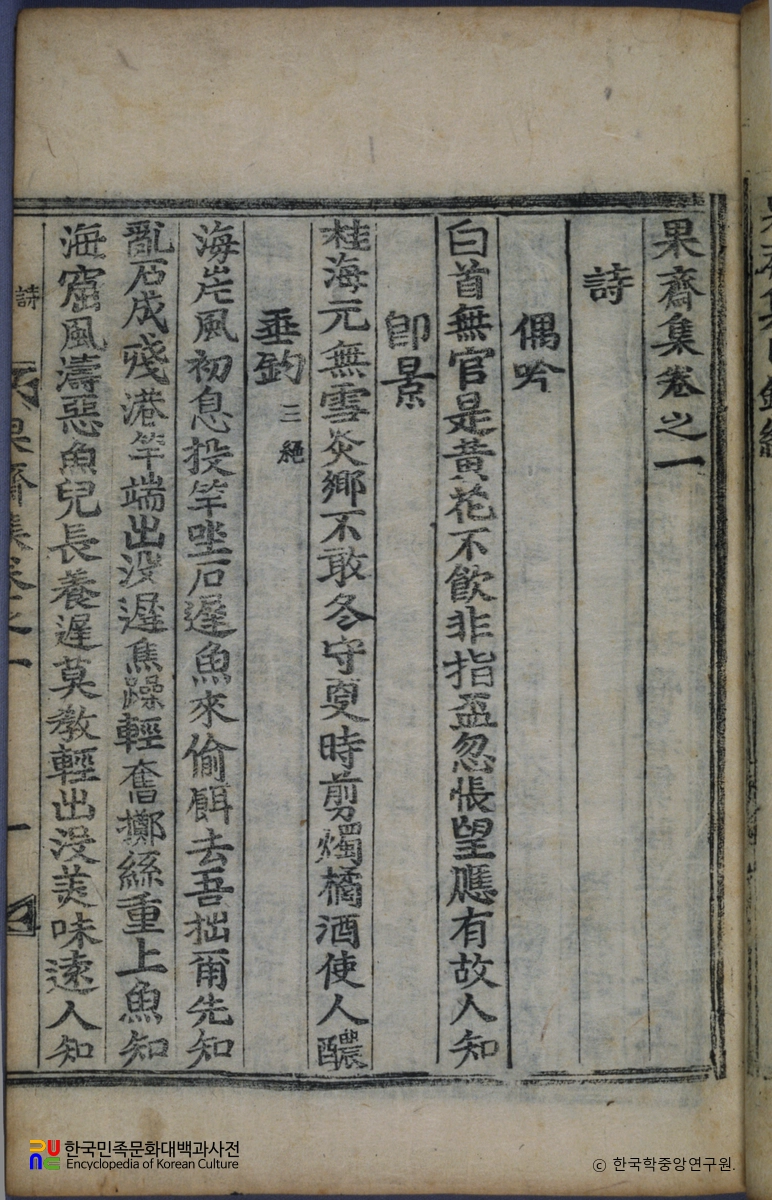 果齋集卷之一
詩
偶吟
白首無官是黃花不飮非指盃忽悵望應有故人知
卽景
桂海元無雪炎鄉不敢冬守更時剪燭橘酒使人醲
垂釣 三絶
海岸風初息投竿坐石遲魚來偷餌去吾拙爾先知
亂石成殘港竿端出沒遲焦躁輕奮擲絲重上魚知
海窟風濤惡魚兒長養遲莫敎輕出沒美味遠人知
詩
果齋集卷之一
一
한국민족문화대백과사전
Encyclopedia of Korean Culture
© 한국학중앙연구원.